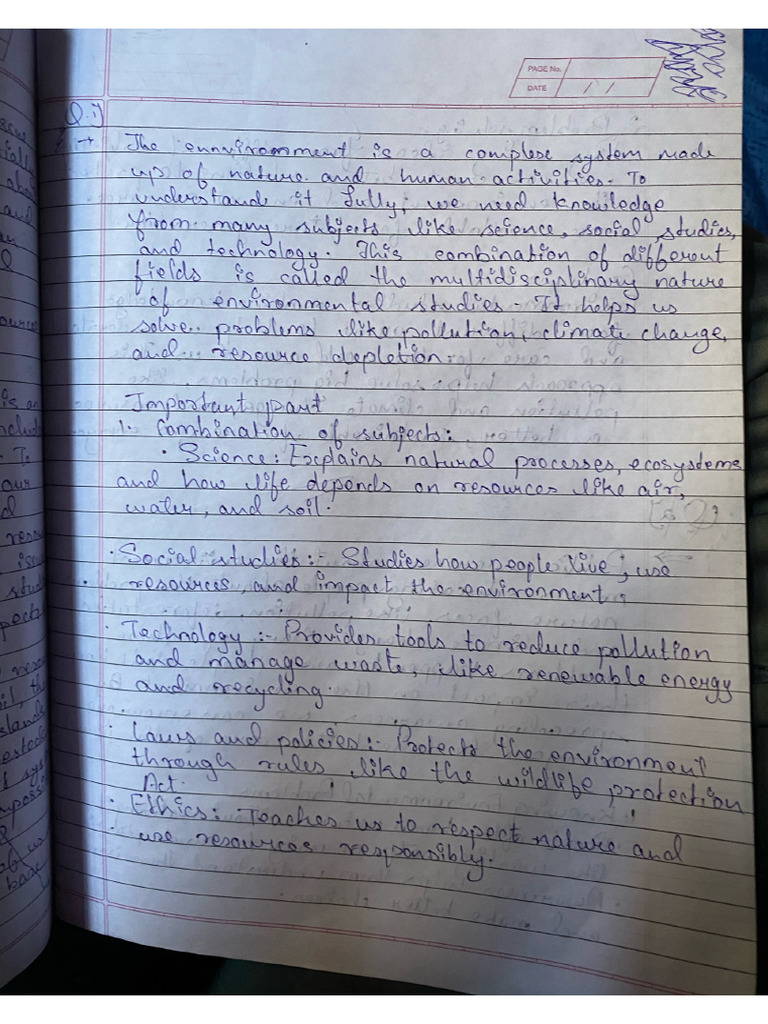 PAGE No.
DATE / /
Q.1)
→ The ennvironment is a complese system made
up of nature and human activities. To
understand it fully, we need knowledge
from many subjects like science, social studies,
and technology. This combination of different
fields is called the multidisciplinary nature
of environmental studies. It helps us
solve problems like pollution, climate change,
and resource depletion.
Important part
1. Combination of subjects:
• Science: Explains natural processes, ecosystems
and how life depends on resources like air,
water, and soil.
• Social studies:- Studies how people live, use
resources, and impact the environment.
• Technology:- Provides tools to reduce pollution
and manage waste, like renewable energy
and recycling.
• Laws and policies:- Protects the environment
through rules like the wildlife protection
Act.
• Ethics: Teaches us to respect nature and
use resources responsibly.